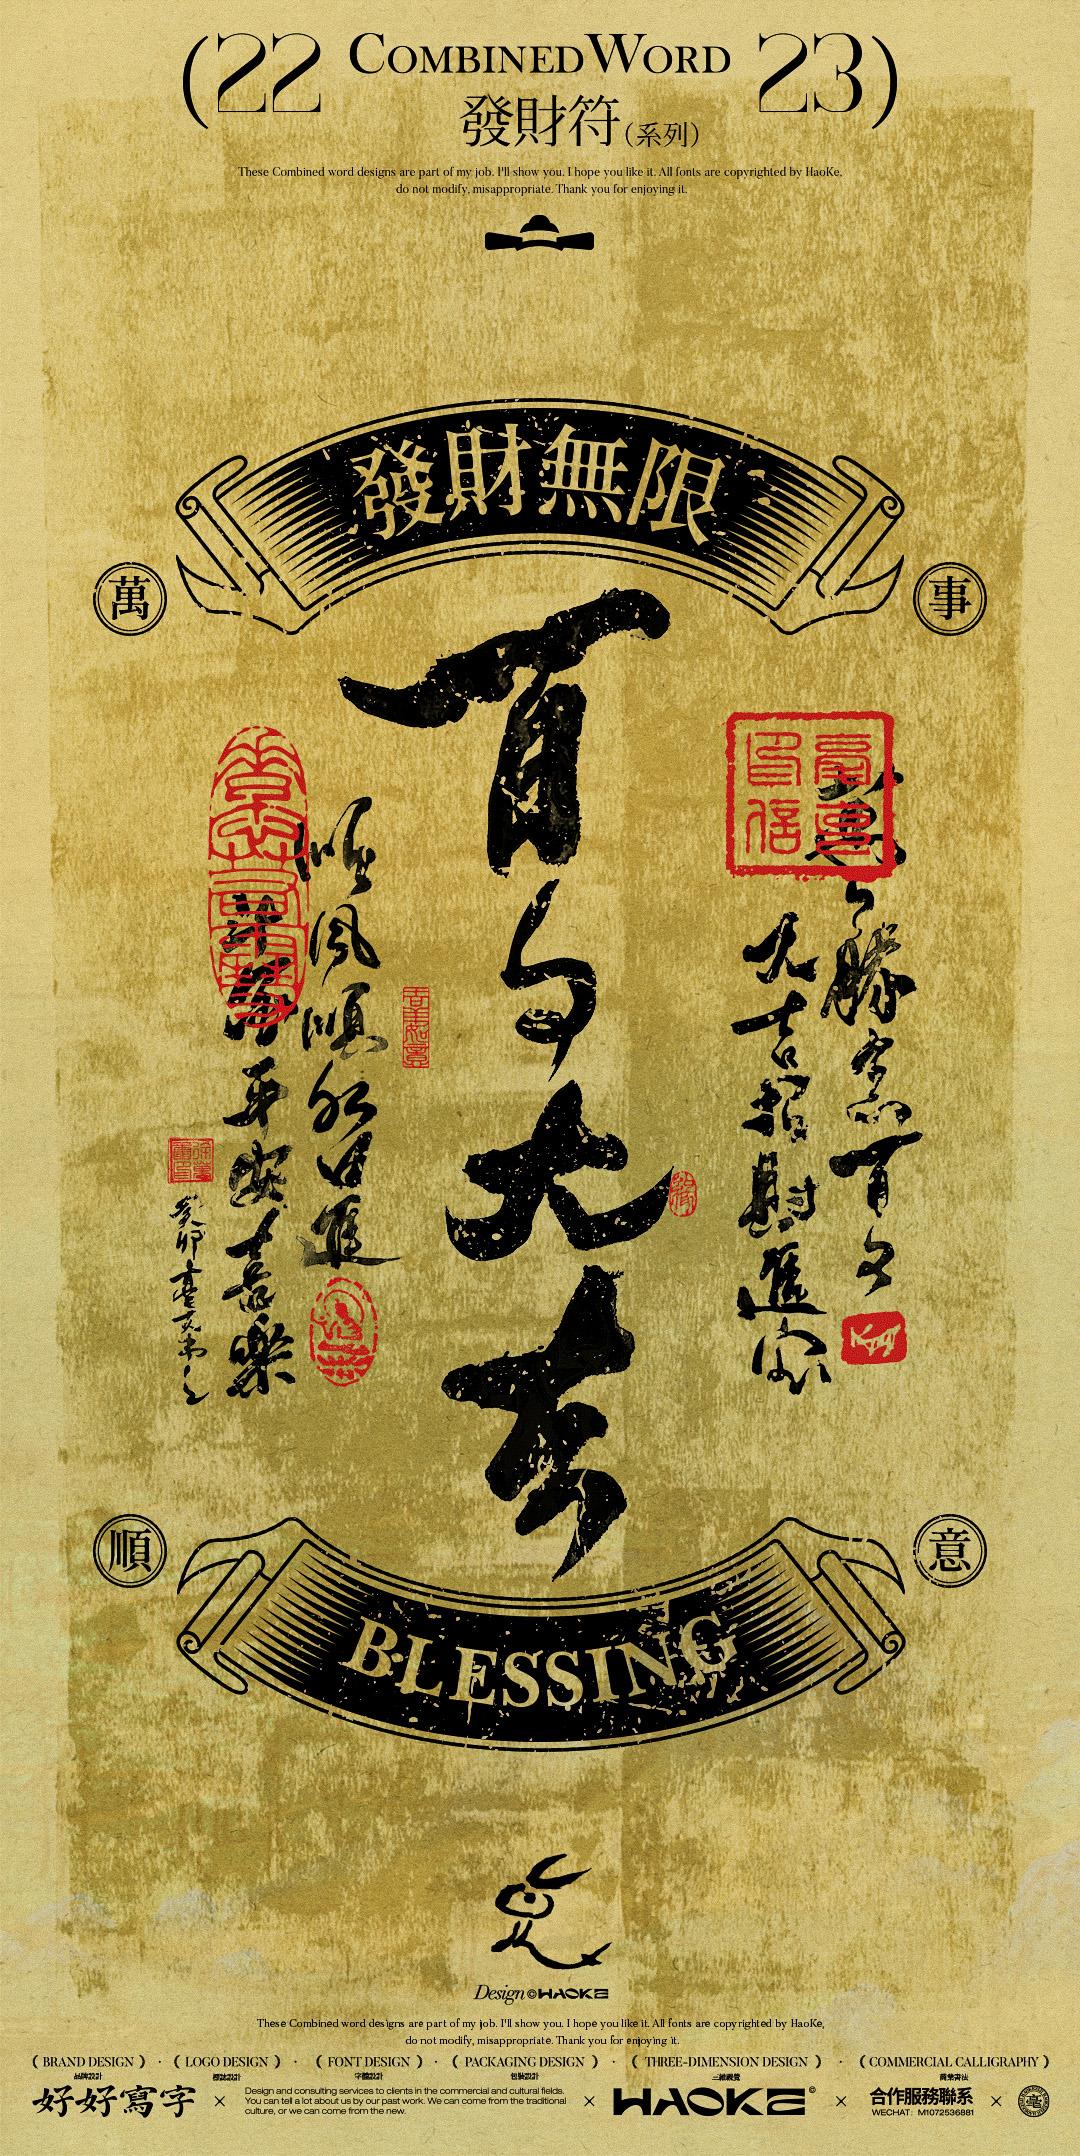 (22 COMBINED WORD 23)
發財符(系列)
These Combined word designs are part of my job. I'll show you. I hope you like it. All fonts are copyrighted by HaoKe,
do not modify, misappropriate. Thank you for enjoying it.
發財無限
萬
事
百無
大吉
大吉招財進寶
百無
順風順水日進
平安喜樂
吉羊如意
癸卯
順
意
BLESSING
Design©HAOKE
These Combined word designs are part of my job. I'll show you. I hope you like it. All fonts are copyrighted by HaoKe,
do not modify, misappropriate. Thank you for enjoying it.
( BRAND DESIGN ) · ( LOGO DESIGN ) · ( FONT DESIGN ) · ( PACKAGING DESIGN ) · ( THREE-DIMENSION DESIGN ) · ( COMMERCIAL CALLIGRAPHY )
品牌設計 標誌設計 字體設計 包裝設計 三維視覺 商業書法
好好寫字 × Design and consulting services to clients in the commercial and cultural fields.
You can tell a lot about us by our past work. We can come from the traditional
culture, or we can come from the new.
× HAOKE© × 合作服務聯系
WECHAT: M1072536881 ×